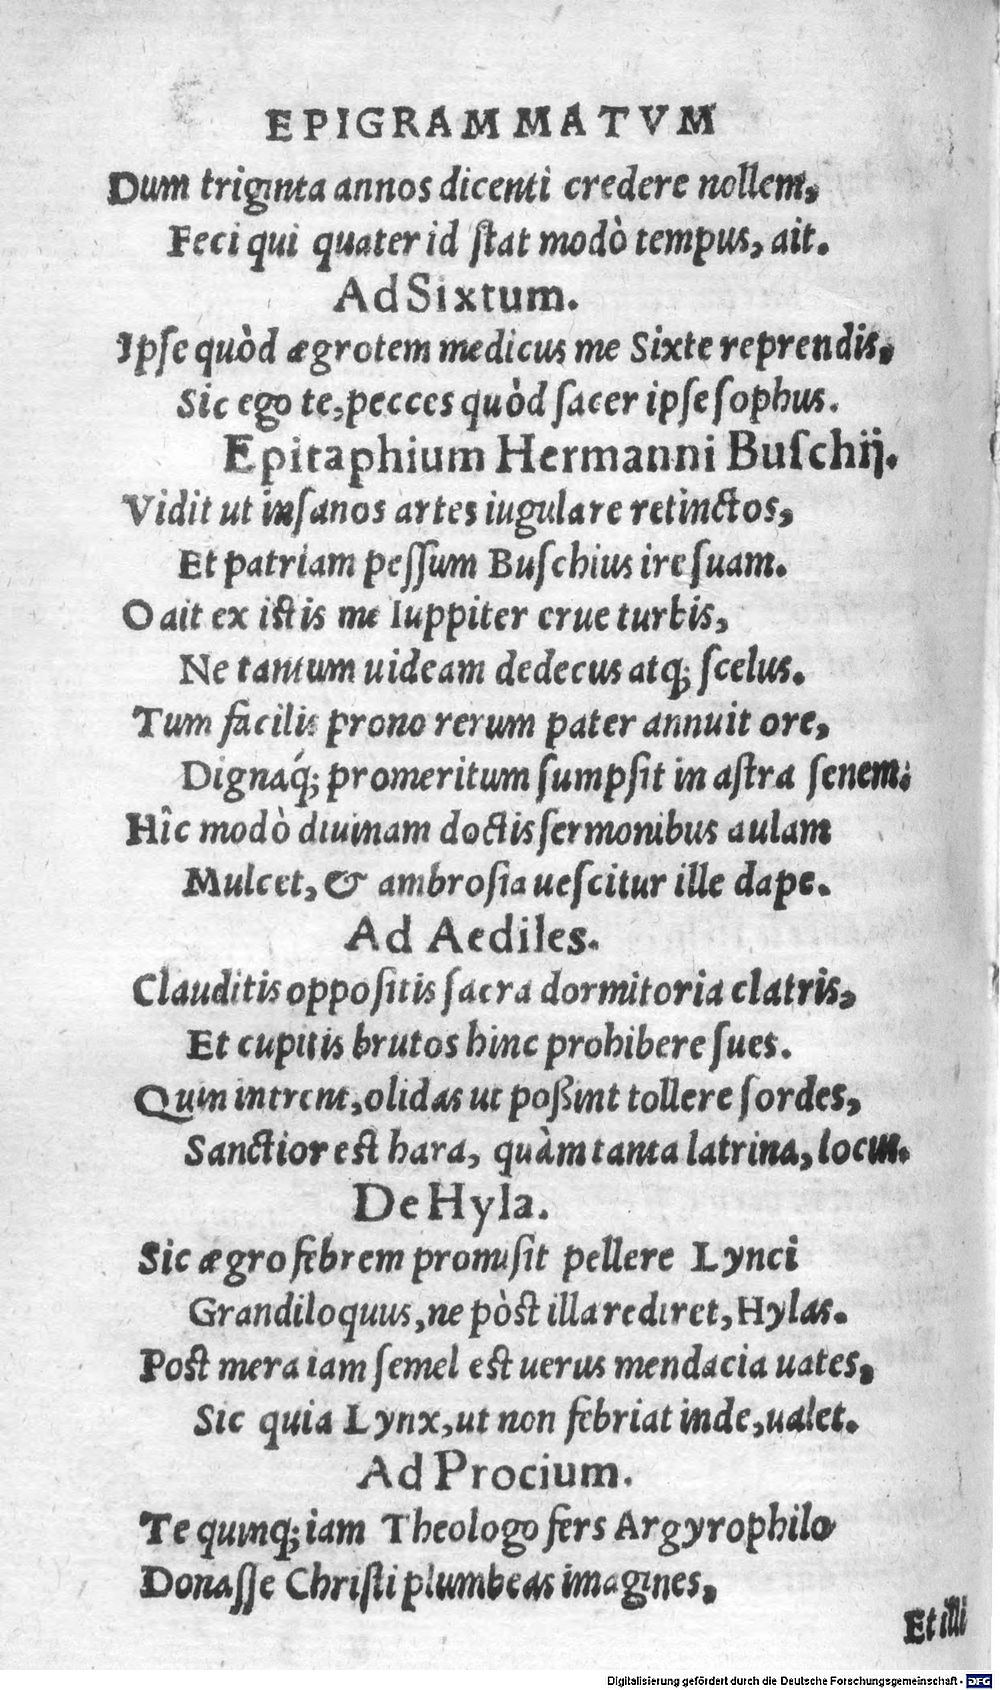 EPIGRAMMATVM
Dum triginta annos dicenti credere nollem,
Feci qui quater id ſtat modò tempus, ait.
Ad Sixtum.
Ipſe quòd ægrotem medicus me Sixte reprendis,
Sic ego te, pecces quòd ſacer ipſe ſophus.
Epitaphium Hermanni Buſchij.
Vidit ut inſanos artes iugulare retinctos,
Et patriam peſſum Buſchius ire ſuam.
O ait ex iſtis me Iuppiter erue turbis,
Ne tantum uideam dedecus atq; ſcelus.
Tum facilis prono rerum pater annuit ore,
Dignaq́; promeritum ſumpſit in aſtra ſenem:
Hîc modò diuinam doctis ſermonibus aulam
Mulcet, & ambroſia ueſcitur ille dape.
Ad Aediles.
Clauditis oppoſitis ſacra dormitoria clatris,
Et cupitis brutos hinc prohibere ſues.
Quin intrent, olidas ut poßint tollere ſordes,
Sanctior eſt hara, quàm tanta latrina, locus.
De Hyla.
Sic ægro febrem promiſit pellere Lynci
Grandiloquus, ne pòſt illa rediret, Hylas.
Poſt mera iam ſemel eſt uerus mendacia uates,
Sic quia Lynx, ut non febriat inde, ualet.
Ad Procium.
Te quinq; iam Theologo fers Argyrophilo
Donaſſe Chriſti plumbeas imagines,
Et illi
Digitalisierung gefördert durch die Deutsche Forschungsgemeinschaft - DFG